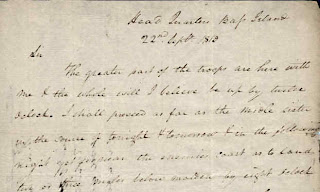 Head Quarters Bass Island
22nd Sept. 1813
Sir
The greater part of the troops are here with
me & the whole will I believe be up by twelve
oclock. I shall proceed as far as the middle Sister
in the course of tonight & tomorrow & in the following
night get so near the enemies coast as to land
two or three hours before day by eight oclock